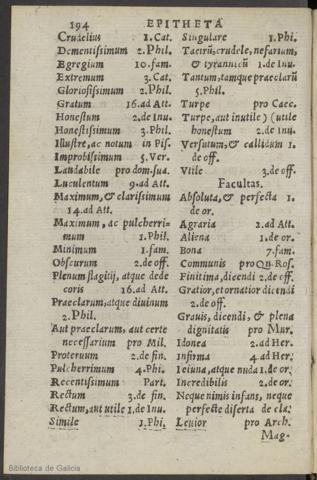 194 EPITHETA
Crudelius 1.Cat.
Dementissimum 2.Phil.
Egregium 10.fam.
Extremum 3.Cat.
Gloriosissimum 2.Phil.
Gratum 16.ad Att.
Honestum 2.de inu.
Honestissimum 3.Phil.
Illustre, ac notum in Pis.
Improbissimum 5.Ver.
Laudabile pro dom.sua.
Luculentum 9.ad Att.
Maximum, & clarissimum
14.ad Att.
Maximum, ac pulcherri-
mum 1.Phil.
Minimum 1.fam.
Obscurum 2.de off.
Plenum flagitij, atque dede
coris 16.ad Att.
Praeclarum, atque diuinum
2.Phil.
Aut praeclarum, aut certe
necessarium pro Mil.
Proterum 2.de fin.
Pulcherrimum 4.Phi.
Recentissimum Part.
Rectum 3.de fin.
Rectum, aut utile 1.de Inu.
Simile 1.Phi.
Singulare 1.Phi.
Taetrū, crudele, nefarium,
& tyrannicū 1.de Inu.
Tantum, tamque praeclarū
5.Phil.
Turpe pro Caec.
Turpe, aut inutile ) (utile
honestum 2.de inu.
Versutum, & callidum 1.
de off.
Vtile 3.de off.
Facultas.
Absoluta, & perfecta 1.
de or.
Agraria 1.ad Att.
Aliena 1.de or.
Bona 7.fam.
Communis pro QR.Ros.
Finitima, dicendi 2.de off.
Gratior, et ornatior dicendi
2.de off.
Grauis, dicendi, & plena
dignitatis pro Mur.
Idonea 2.ad Her.
Infirma 4.ad Her.
Ieiuna, atque nuda 1.de or.
Incredibilis 2.de or.
Neque nimis infans, neque
perfecte diserta de cla.
Leuior pro Arch.
Mag-
Biblioteca de Galicia